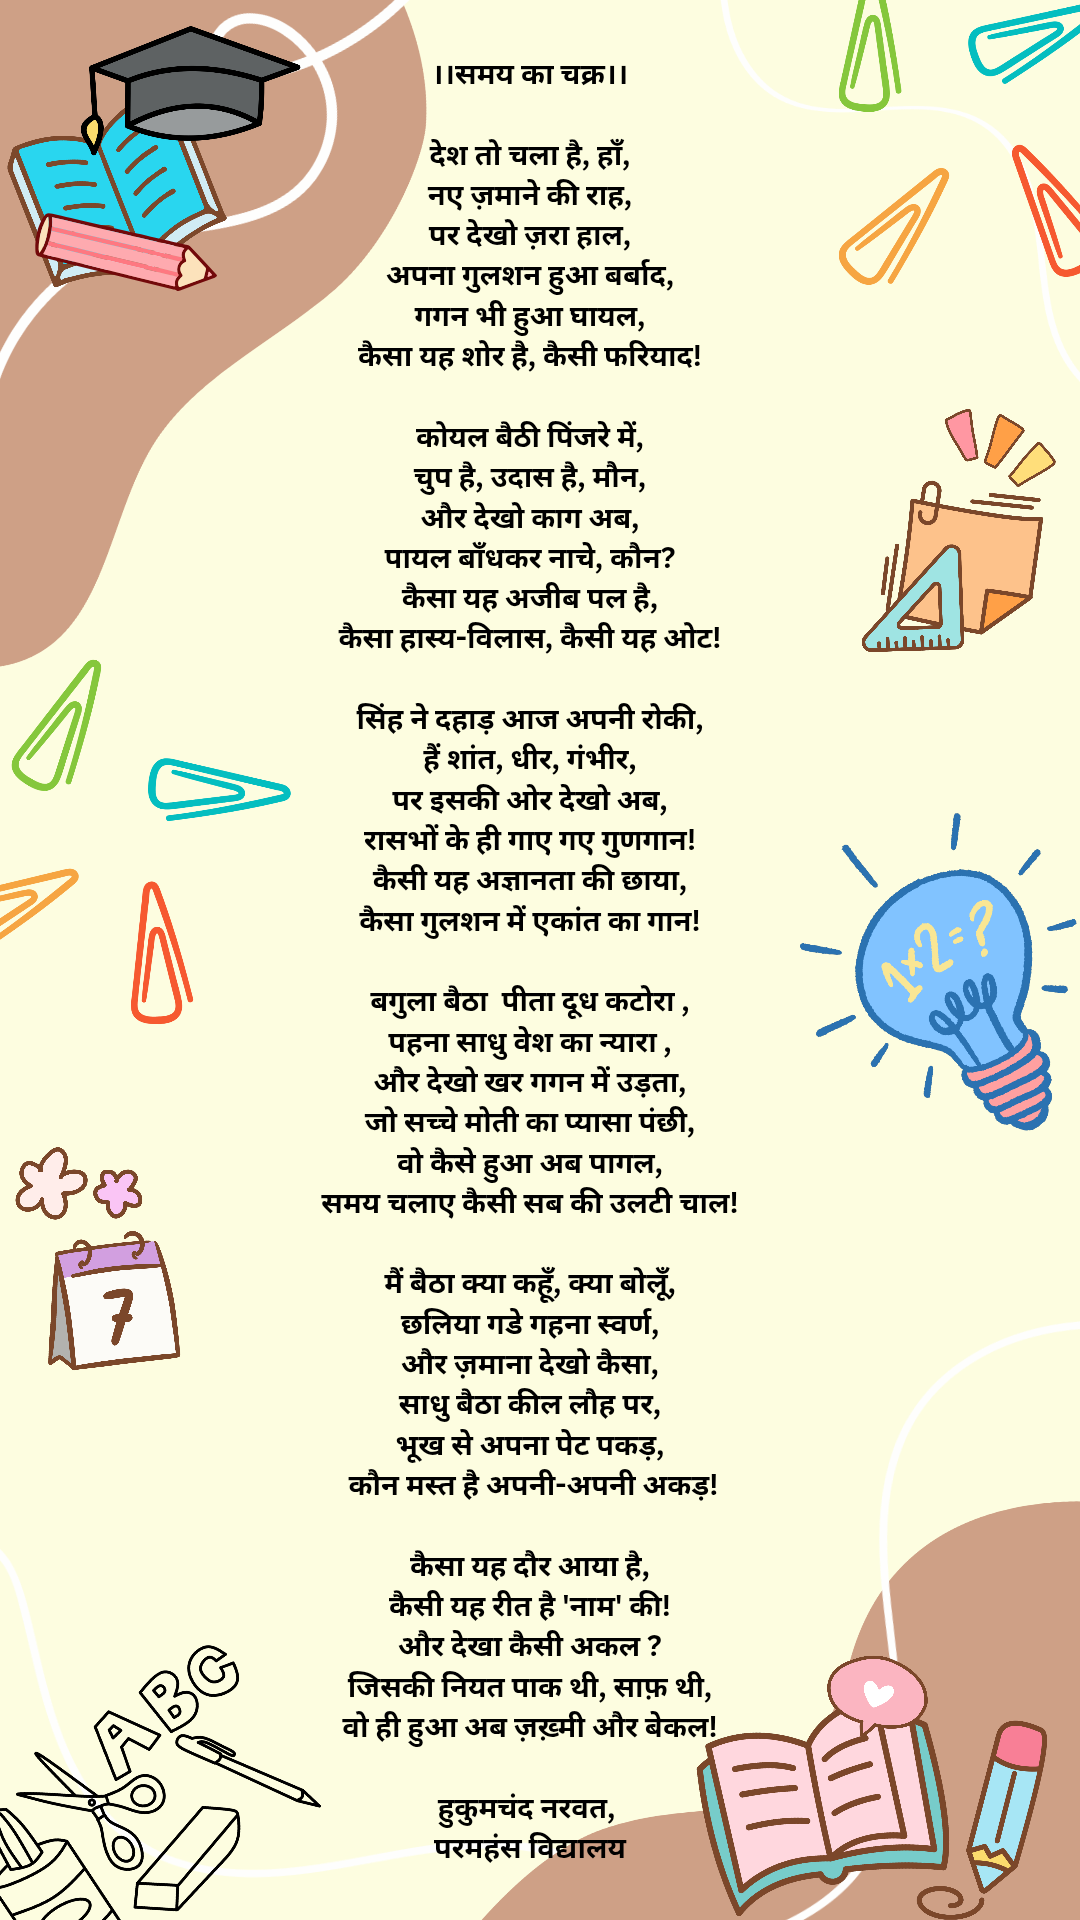 ।।समय का चक्र।।
देश तो चला है, हाँ,
नए ज़माने की राह,
पर देखो ज़रा हाल,
अपना गुलशन हुआ बर्बाद,
गगन भी हुआ घायल,
कैसा यह शोर है, कैसी फरियाद!
कोयल बैठी पिंजरे में,
चुप है, उदास है, मौन,
और देखो काग अब,
पायल बाँधकर नाचे, कौन?
कैसा यह अजीब पल है,
कैसा हास्य-विलास, कैसी यह ओट!
सिंह ने दहाड़ आज अपनी रोकी,
हैं शांत, धीर, गंभीर,
पर इसकी ओर देखो अब,
रासभों के ही गाए गए गुणगान!
कैसी यह अज्ञानता की छाया,
कैसा गुलशन में एकांत का गान!
1×2=?
बगुला बैठा पीता दूध कटोरा ,
पहना साधु वेश का न्यारा ,
और देखो खर गगन में उड़ता,
जो सच्चे मोती का प्यासा पंछी,
वो कैसे हुआ अब पागल,
समय चलाए कैसी सब की उलटी चाल!
7
मैं बैठा क्या कहूँ, क्या बोलूँ,
छलिया गडे गहना स्वर्ण,
और ज़माना देखो कैसा,
साधु बैठा कील लौह पर,
भूख से अपना पेट पकड़,
कौन मस्त है अपनी-अपनी अकड़!
कैसा यह दौर आया है,
कैसी यह रीत है 'नाम' की!
और देखा कैसी अकल ?
जिसकी नियत पाक थी, साफ़ थी,
वो ही हुआ अब ज़ख़्मी और बेकल!
ABC
हुकुमचंद नरवत,
परमहंस विद्यालय